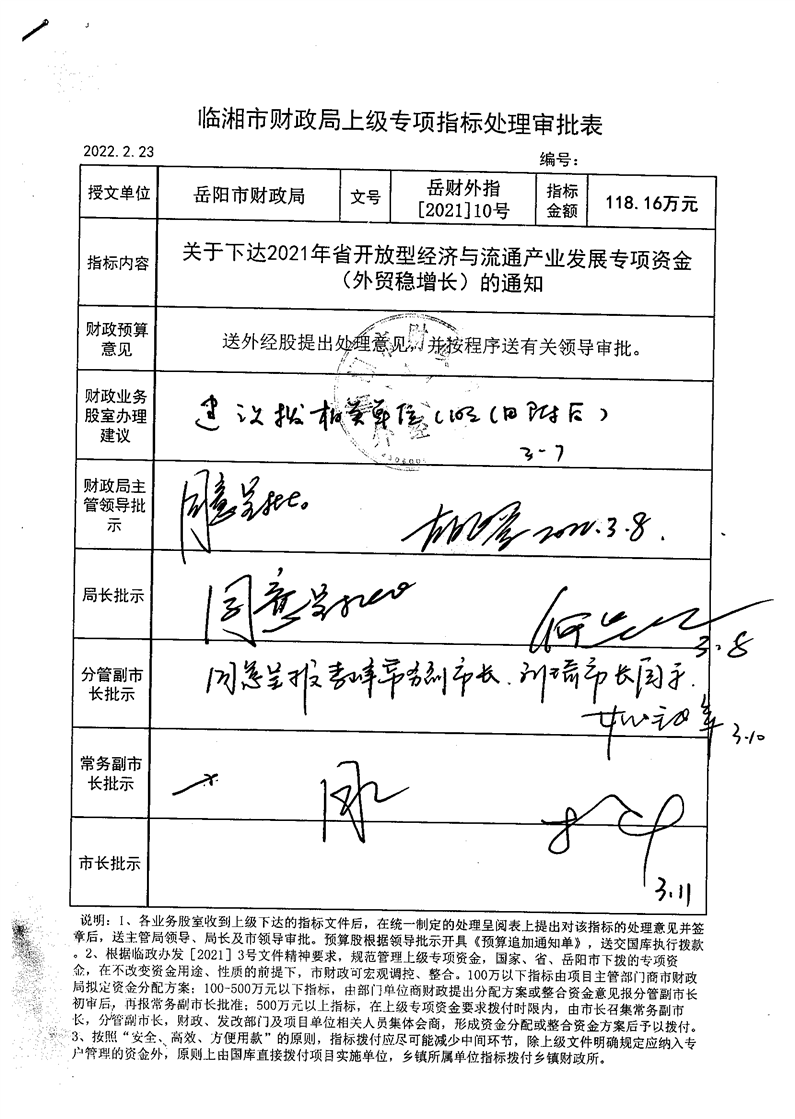 临湘市财政局上级专项指标处理审批表
2022.2.23
编号：
授文单位
岳阳市财政局
文号
岳财外指
[2021]10号
指标
金额
118.16万元
指标内容
关于下达2021年省开放型经济与流通产业发展专项资金
（外贸稳增长）的通知
财政预算
意见
送外经股提出处理意见，并按程序送有关领导审批。
财政业务
股室办理
建议
建议拨相关单位
附后）
3-7
财政局主
管领导批
示
同意呈批。
2022.3.8.
局长批示
同意呈批
3.8
分管副市
长批示
同意呈报李峰常务副市长、刘琦市长阅示.
3.10
常务副市
长批示
同意
市长批示
3.11
说明：1、各业务股室收到上级下达的指标文件后，在统一制定的处理呈阅表上提出对该指标的处理意见并签
章后，送主管局领导、局长及市领导审批。预算股根据领导批示开具《预算追加通知单》，送交国库执行拨款
。2、根据临政办发［2021］3号文件精神要求，规范管理上级专项资金，国家、省、岳阳市下拨的专项资
金，在不改变资金用途、性质的前提下，市财政可宏观调控、整合。100万以下指标由项目主管部门商市财政
局拟定资金分配方案；100-500万元以下指标，由部门单位商财政提出分配方案或整合资金意见报分管副市长
初审后，再报常务副市长批准；500万元以上指标，在上级专项资金要求拨付时限内，由市长召集常务副市
长，分管副市长，财政、发改部门及项目单位相关人员集体会商，形成资金分配或整合资金方案后予以拨付。
3、按照“安全、高效、方便用款”的原则，指标拨付应尽可能减少中间环节，除上级文件明确规定应纳入专
户管理的资金外，原则上由国库直接拨付项目实施单位，乡镇所属单位指标拨付乡镇财政所。